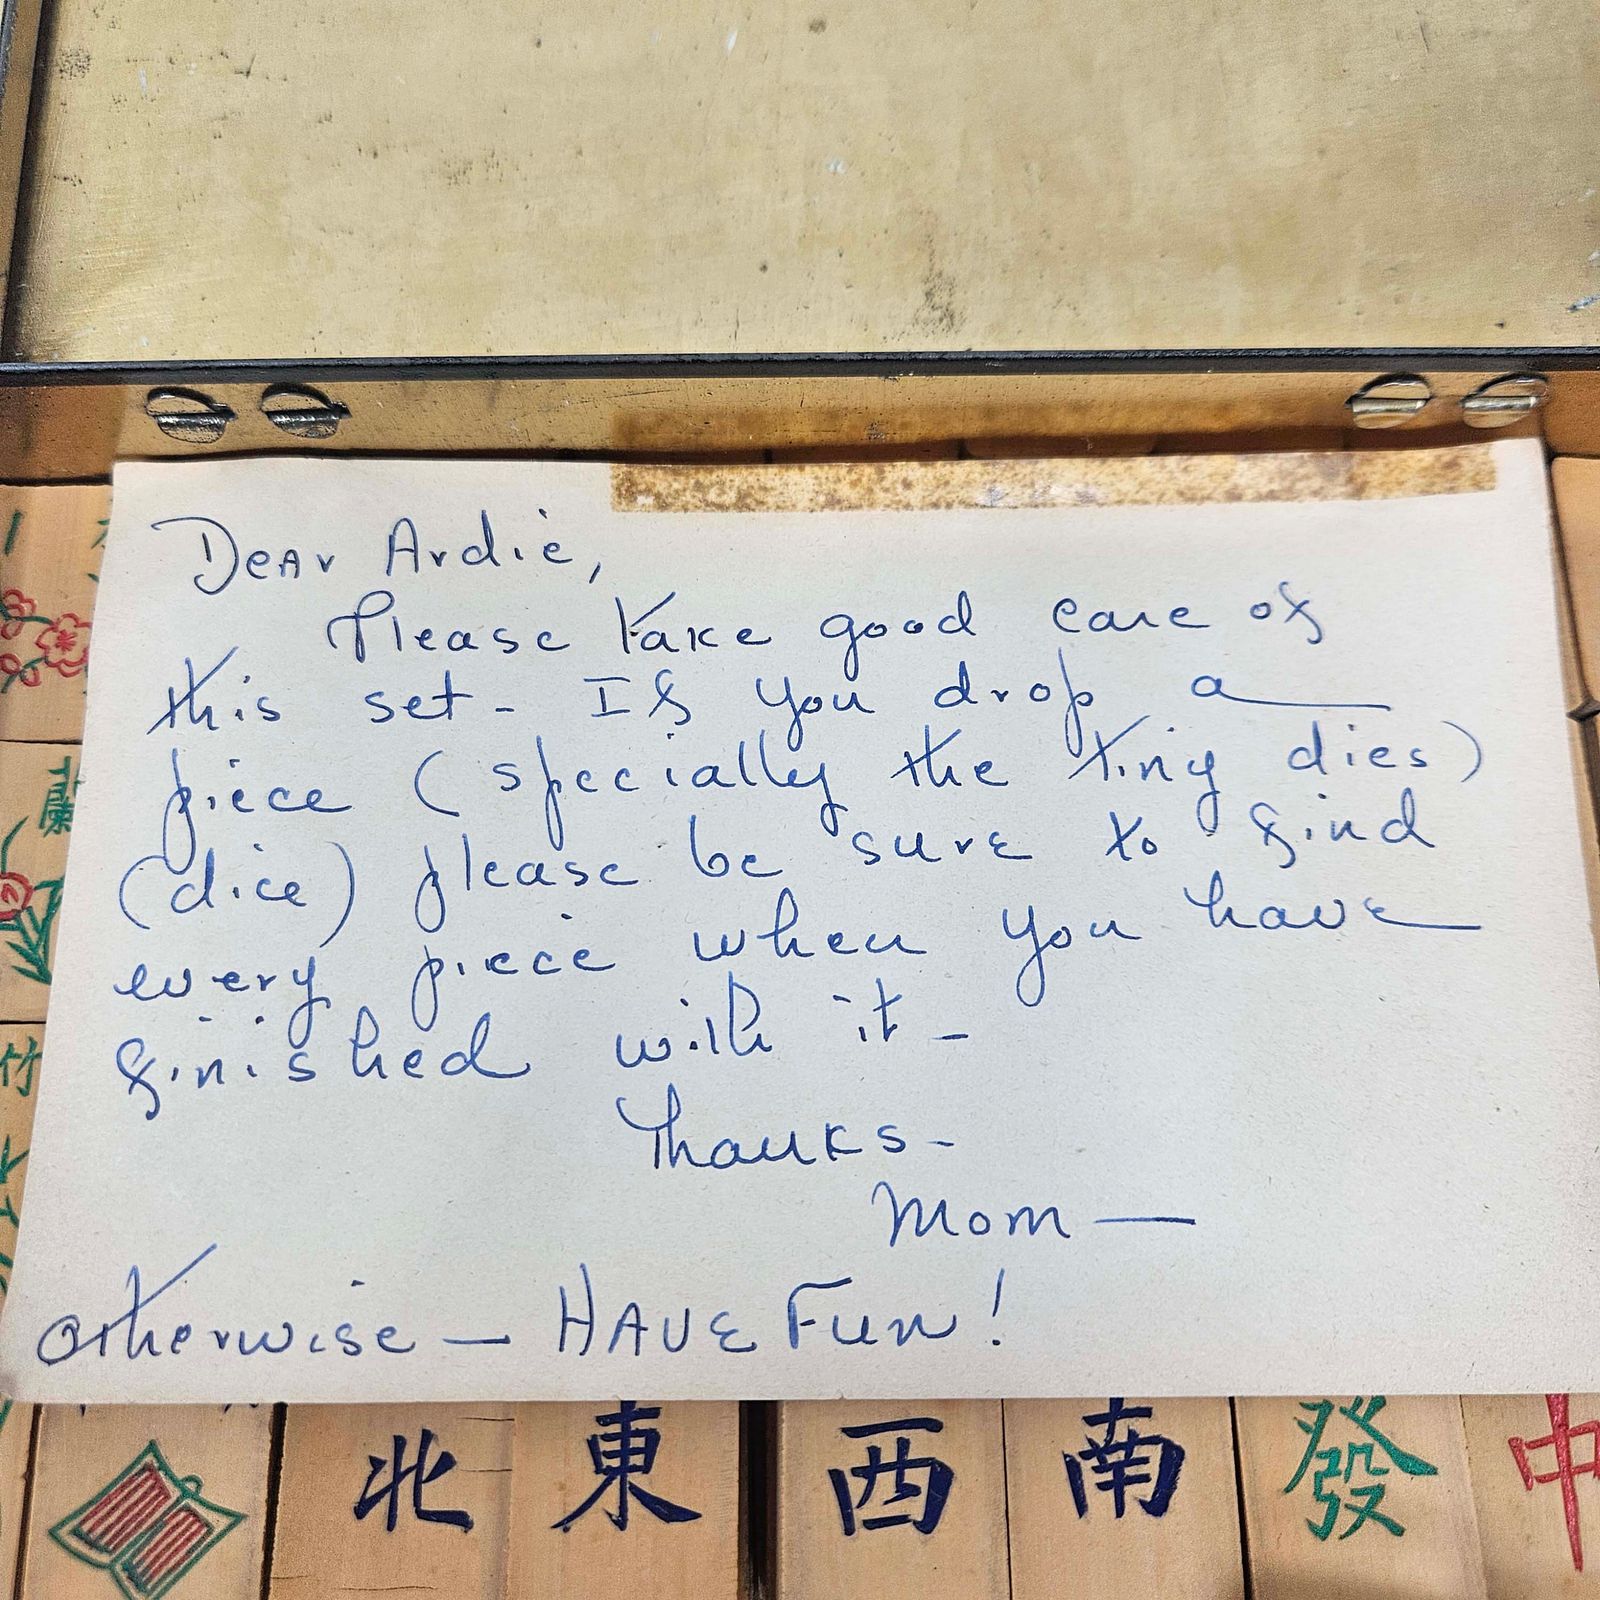 Dear Ardie,
Please take good care of
this set - If you drop a
piece (specially the tiny dies)
(dice) please be sure to find
every piece when you have
finished with it -
Thanks -
Mom —
otherwise — HAVE FUN!
蘭
竹
北 東 西 南 發 中